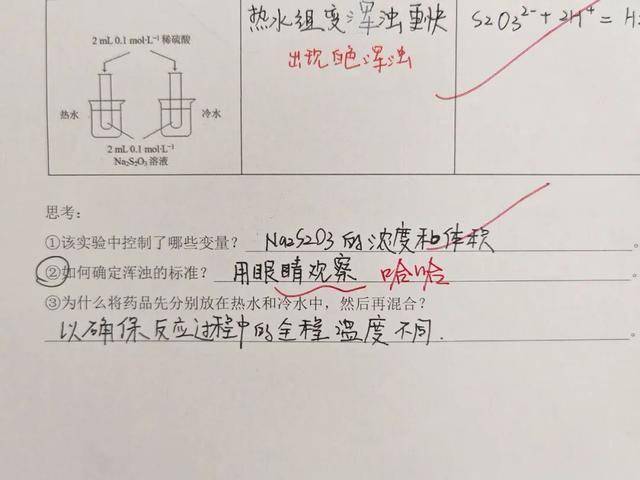 热水组变浑浊更快
出现白色浑浊
S2O3²⁻+2H⁺=H
2 mL 0.1 mol·L⁻¹ 稀硫酸
热水
冷水
2 mL 0.1 mol·L⁻¹
Na₂S₂O₃ 溶液
思考:
①该实验中控制了哪些变量? Na2S2O3的浓度和体积。
②如何确定浑浊的标准? 用眼睛观察 哈哈。
③为什么将药品先分别放在热水和冷水中,然后再混合?
以确保反应过程中的全程温度不同.。